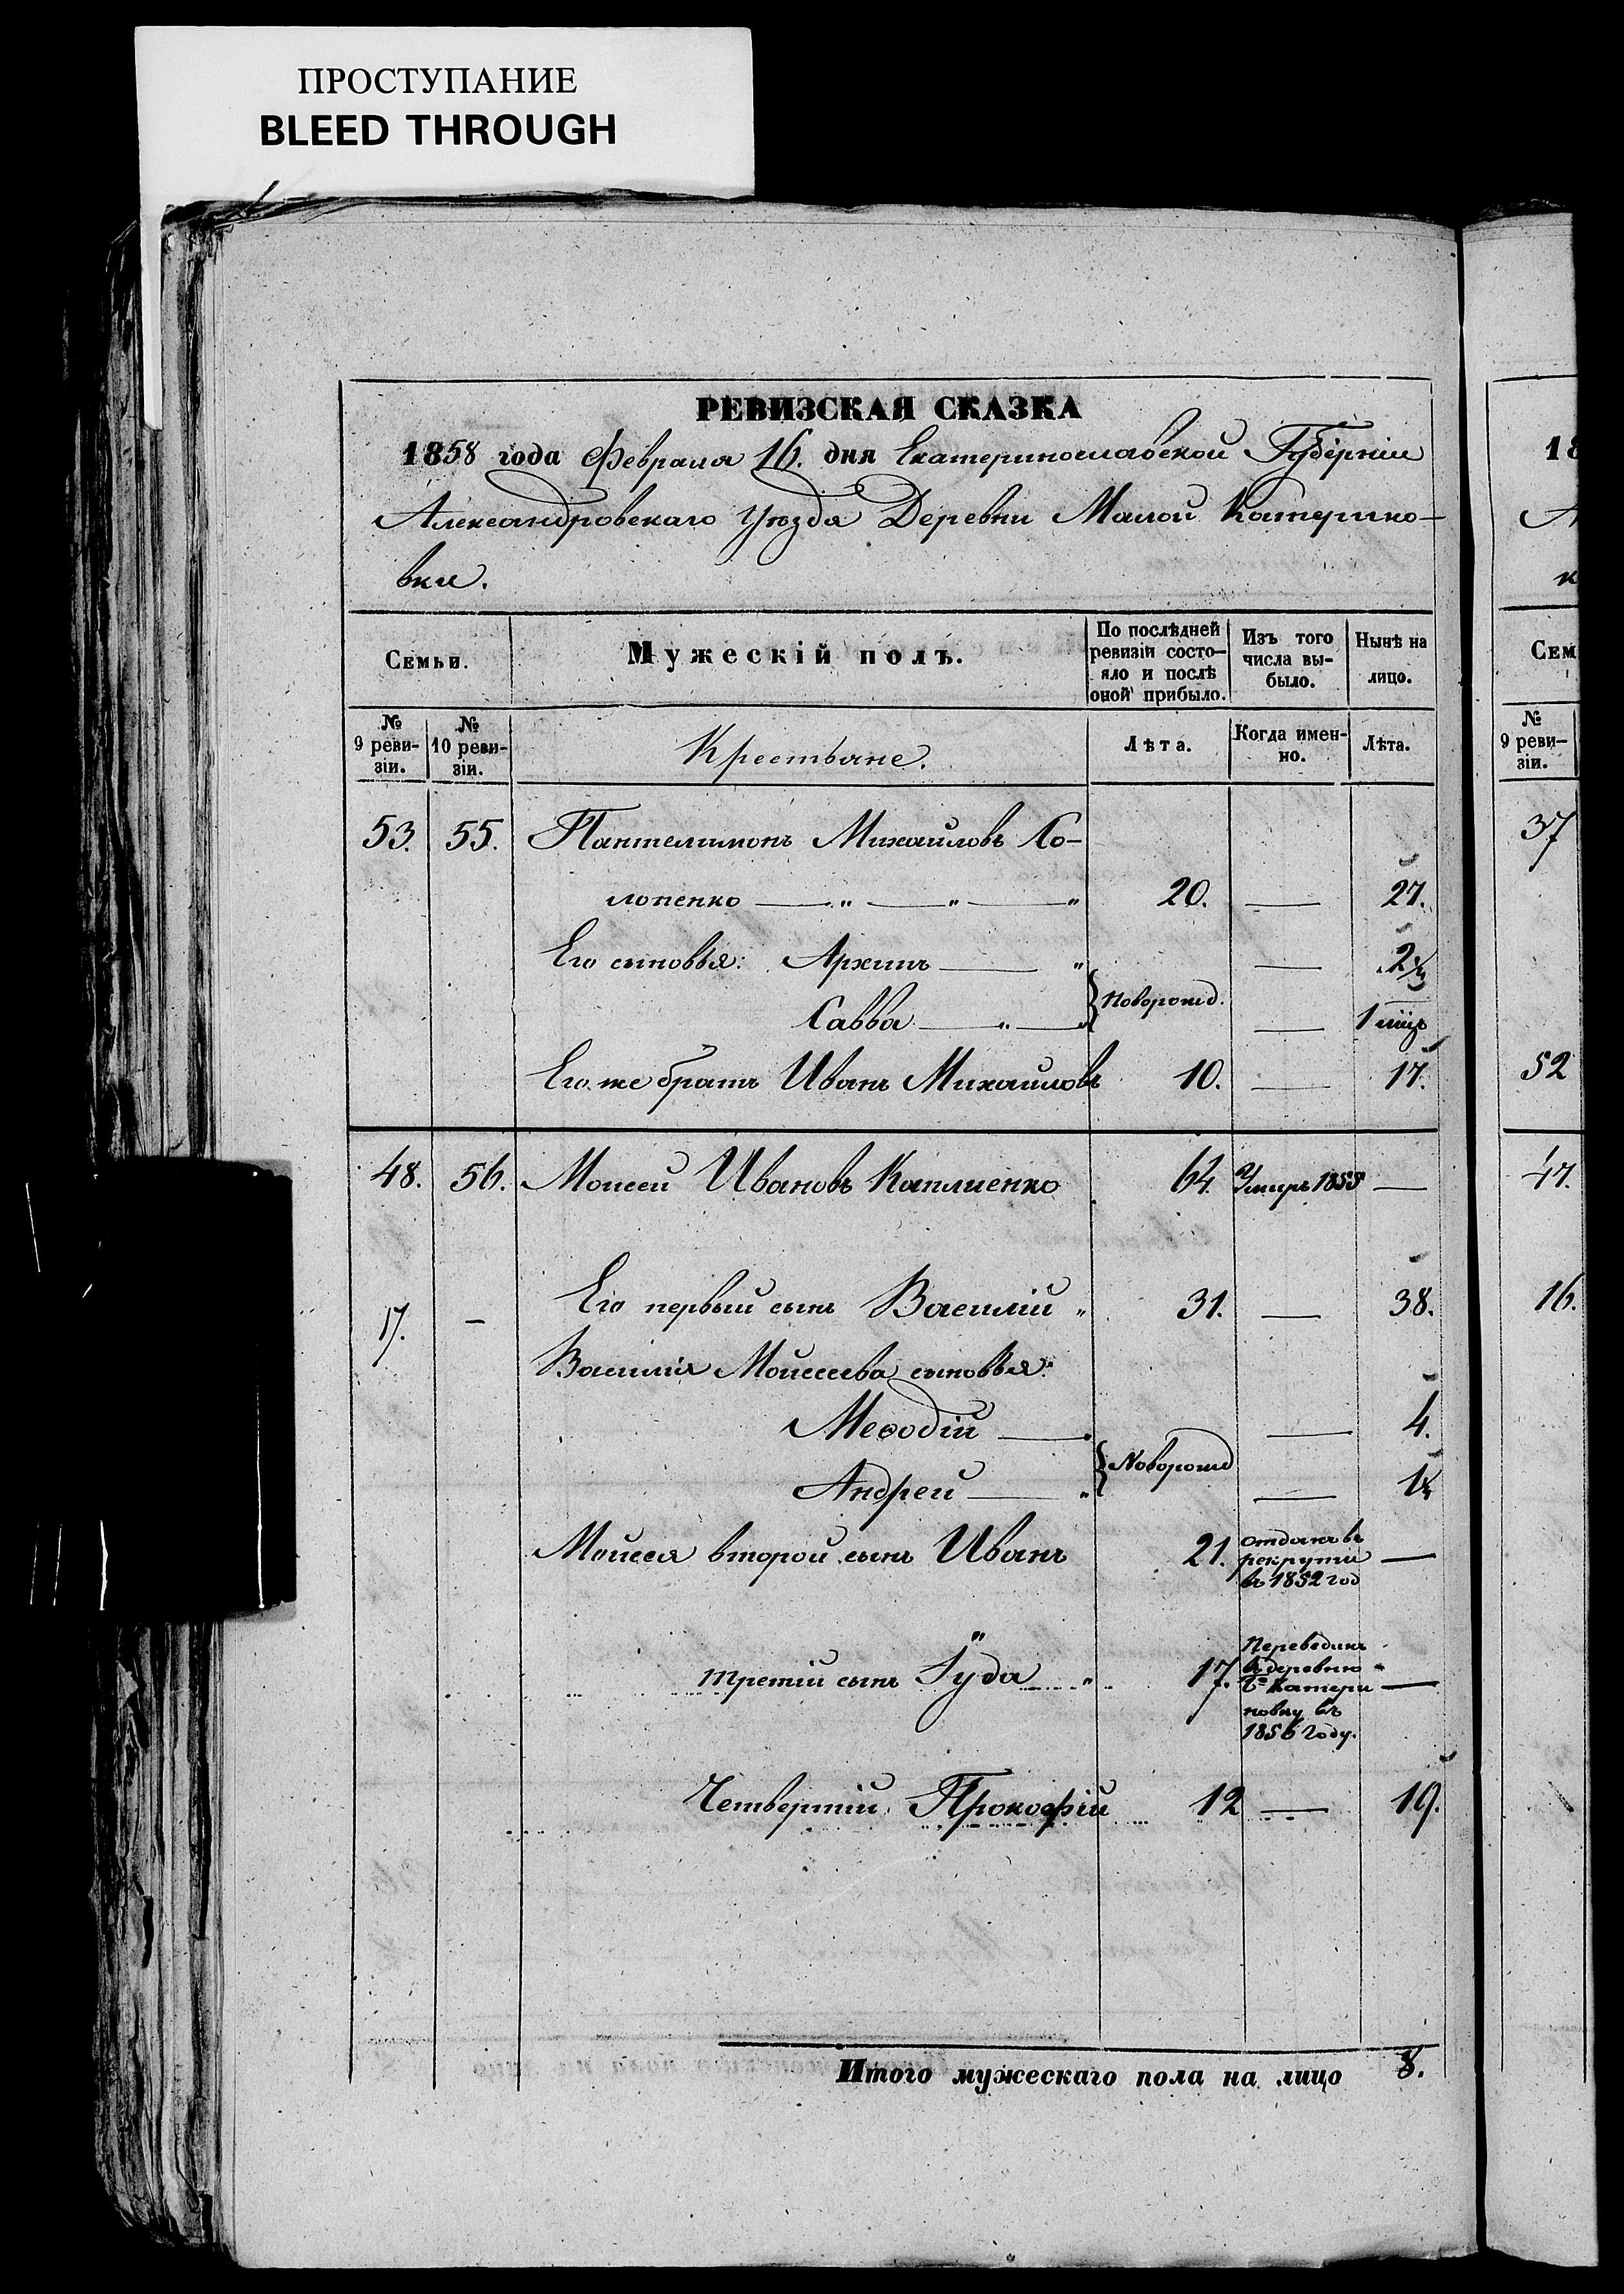 ПРОСТУПАНИЕ
BLEED THROUGH
РЕВИЗСКАЯ СКАЗКА
1858 года Февраля 16. дня Екатеринославской Губерніи
Александровскаго Уѣзда Деревни Малой Катерино-
вки.
Семьи. Мужескій полъ. По послѣдней ревизіи состо- яло и послѣ оной прибыло. Изъ того числа вы- было. Нынѣ на лицо.
№ 9 реви- зіи. № 10 реви- зіи. Крестьяне. Лѣта. Когда имен- но. Лѣта.
53. 55. Пантелимонъ Михайловъ
лопенко — „ — „ — „ 20. — 27.
Его сыновья: Архипъ — „ — 2½
Новорожд.
Савва — „ — „ — 1 мцъ
Его же братъ Иванъ Михайловъ 10. — 17.
48. 56. Моисей Ивановъ Каплиенко 64. Умеръ 1855 —
17. — Его первый сынъ Василій „ 31. — 38.
Василія Моисеева сыновья:
Меѳодій — — 4.
Новорожд
Андрей — „ — 1½
Моисея второй сынъ Иванъ 21. отданъ въ рекруты въ 1852 год —
третій сынъ Іуда „ 17. Переведенъ в деревню Катери новку въ 1856 году. —
Четвертый Прокофій 12 — 19.
Итого мужескаго пола на лицо 8.
18
А
к
Сем
№
9 реви-
зіи.
37
52
47.
16.